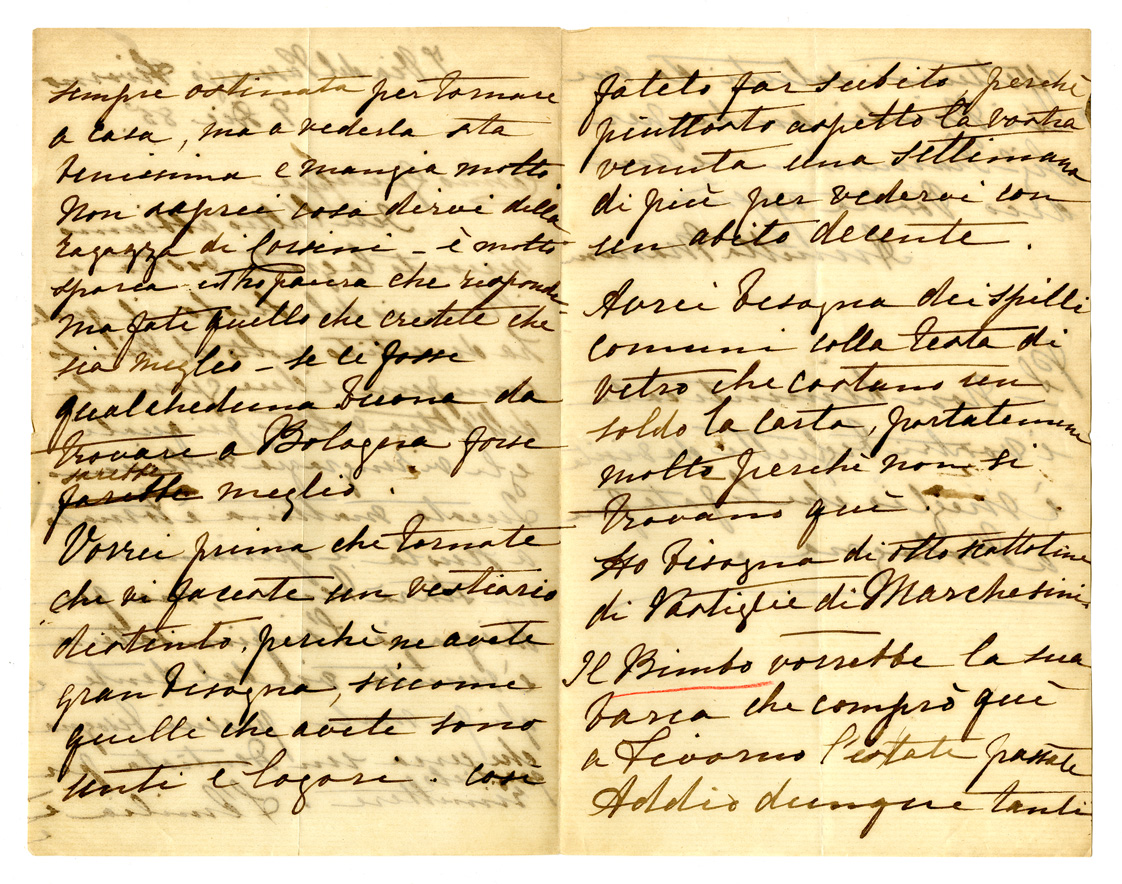 sempre ostinata per tornare
a casa, ma a vederla sta
benissima e mangia molto
Non saprei cosa dirvi della
ragazza di Corsini - è molto
sporca - e ho paura che risponde
ma fate quello che credete che
sia meglio - se ci fosse
qualcheduna buona da
trovare a Bologna forse
sarebbe
farebbe meglio.
Vorrei prima che tornate
che vi faceste un vestiario
distinto, perchè ne avete
gran bisogna, siccome
quelli che avete sono
unti e logori. Così
fatelo far subito, perchè
piuttosto aspetto la vostra
venuta una settimana
di più per vedervi con
un abito decente.
Avrei bisogna dei spilli
comuni colla testa di
vetro che costano un
soldo la carta, portatemene
molto perchè non si
trovano què.
Ho bisogna di otto scattoline
di Pastiglie di Marchesini.
Il Bimbo vorrebbe la sua
barca che comprò què
a Livorno l'estate passata
Addio dunque tanti